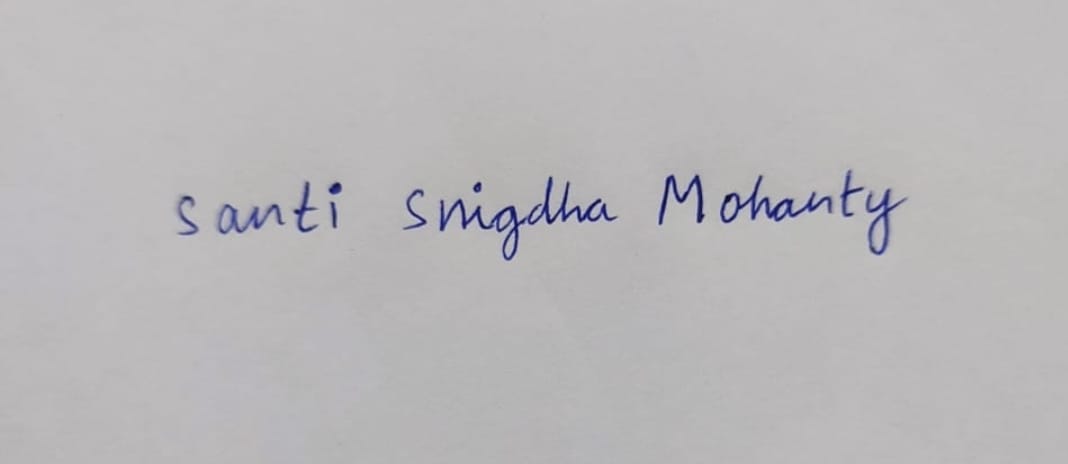 Santi Snigdha Mohanty